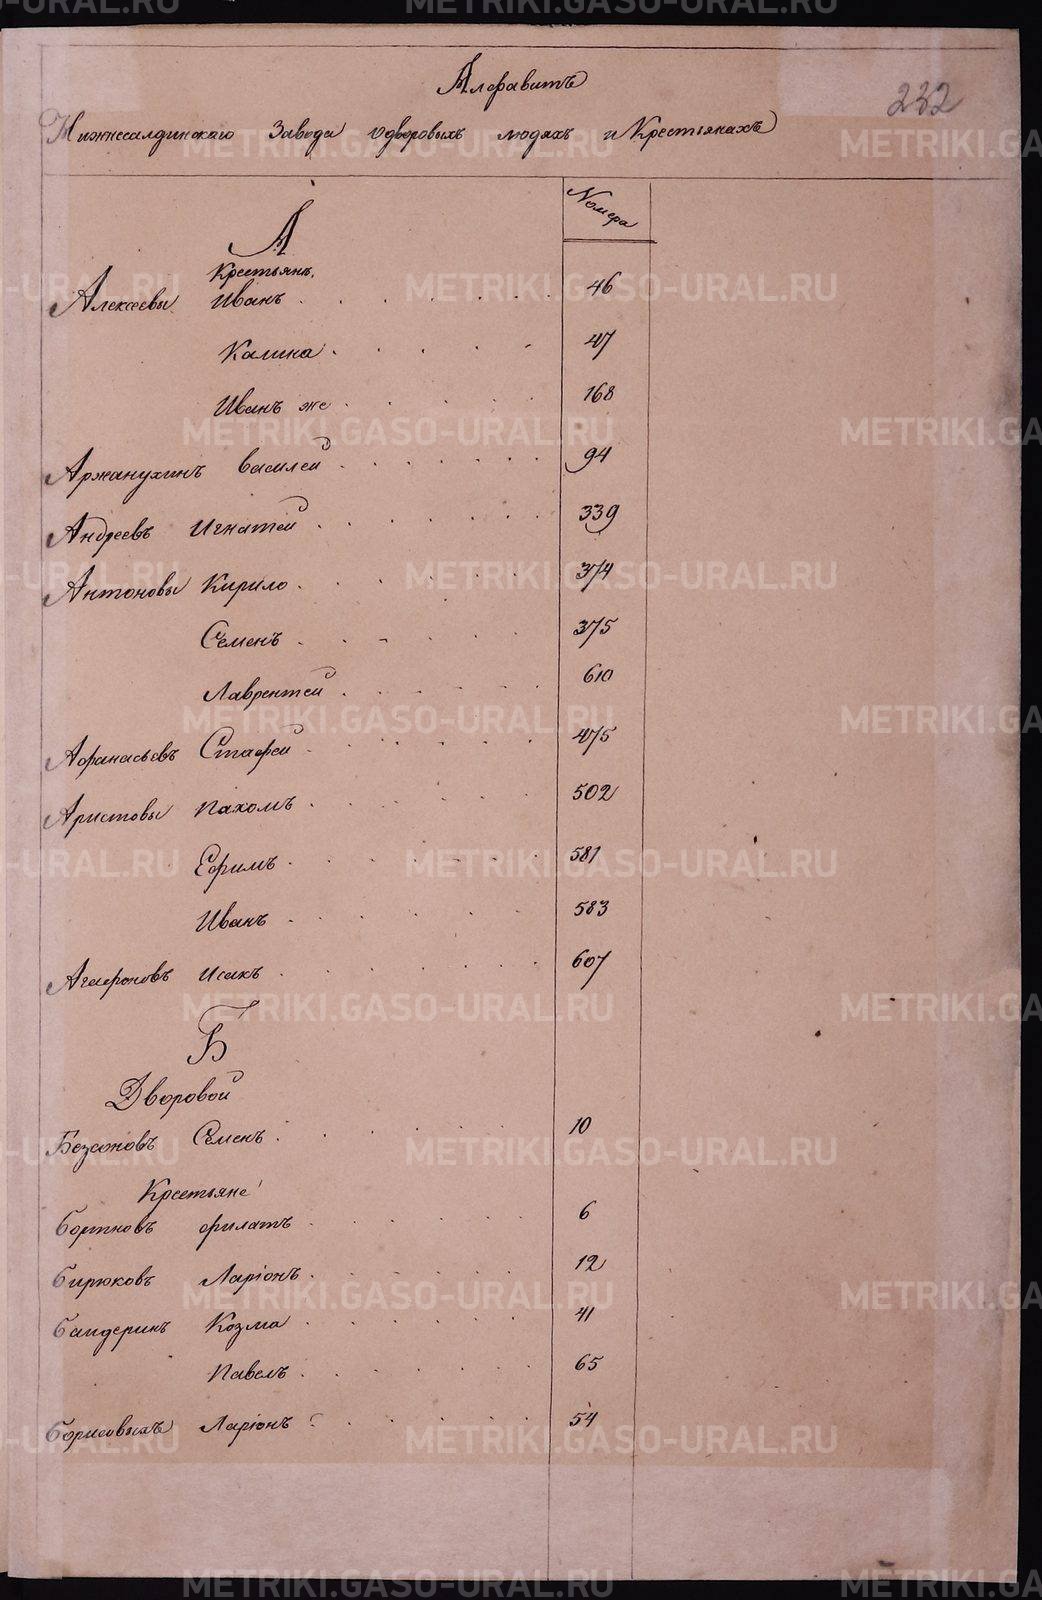 Алфавитъ
232
Нижнесалдинскаго Завода о дворовыхъ людяхъ и Крестьянахъ
Номера
А
Крестьянъ.
Алексеевы Иванъ 46
Калина 47
Иванъ же 168
Аржанухинъ Василей 94
Андреевъ Игнатей 339
Антоновы Кирило 374
Семенъ 375
Лаврентей 610
Афанасьевъ Стафей 475
Аристовы Пахомъ 502
Ефимъ 581
Иванъ 583
Агафоновъ Исакъ 607
Б
Дворовой
Безсоновъ Семенъ 10
Крестьяне
Бортновъ Филатъ 6
Бирюковъ Ларіонъ 12
Бандеринъ Козма 41
Павелъ 65
Борисовыхъ Ларіонъ 54
METRIKI.GASO-URAL.RU